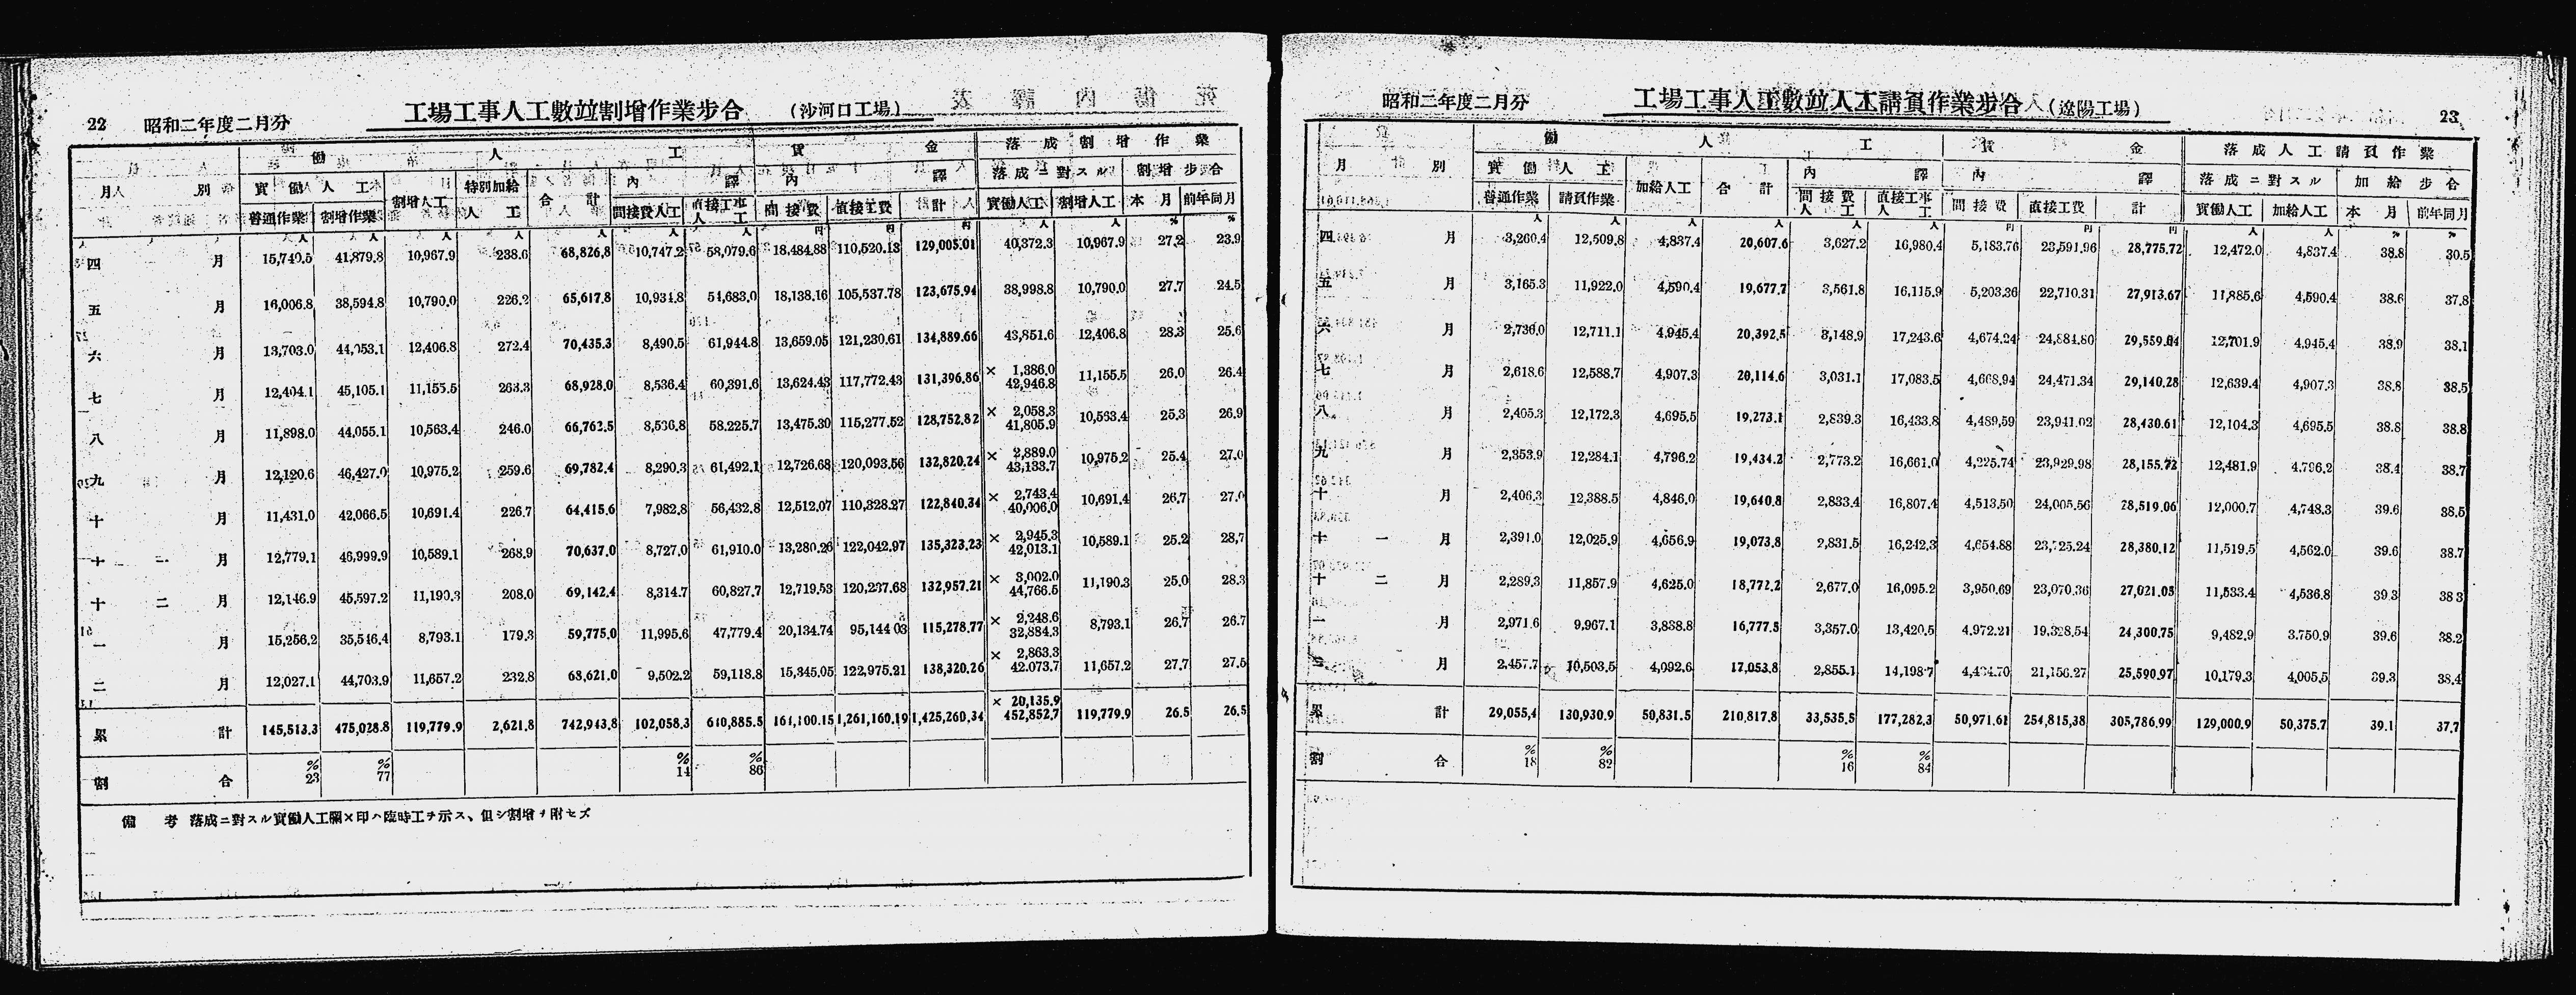 22 昭和二年度二月分 工場工事人工數竝割增作業步合 (沙河口工場)
働人工 賃金 落成割增作業
月別 實働人工 割增人工 特別加給人工 合計 內譯 內譯 計 落成ニ對スル 割增步合
普通作業 割增作業 間接費人工 直接工事人工 間接費 直接工費 實働人工 割增人工 本月 前年同月
人 人 人 人 人 人 人 円 円 円 人 人 % %
四月 15,740.5 41,879.8 10,967.9 238.6 68,826.8 10,747.2 58,079.6 18,484.88 110,520.13 129,005.01 40,372.3 10,967.9 27.2 23.9
五月 16,006.8 38,594.8 10,790.0 226.2 65,617.8 10,934.8 54,683.0 18,138.16 105,537.78 123,675.94 38,998.8 10,790.0 27.7 24.5
六月 13,703.0 44,053.1 12,406.8 272.4 70,435.3 8,490.5 61,944.8 13,659.05 121,230.61 134,889.66 43,851.6 12,406.8 28.3 25.6
七月 12,404.1 45,105.1 11,155.5 263.3 68,928.0 8,536.4 60,391.6 13,624.43 117,772.43 131,396.86 × 1,386.0 42,946.8 11,155.5 26.0 26.4
八月 11,898.0 44,055.1 10,563.4 246.0 66,762.5 8,536.8 58,225.7 13,475.30 115,277.52 128,752.82 × 2,058.3 41,805.9 10,563.4 25.3 26.9
九月 12,120.6 46,427.0 10,975.2 259.6 69,782.4 8,290.3 61,492.1 12,726.68 120,093.56 132,820.24 × 2,889.0 43,133.7 10,975.2 25.4 27.0
十月 11,431.0 42,066.5 10,691.4 226.7 64,415.6 7,982.8 56,432.8 12,512.07 110,328.27 122,840.34 × 2,743.4 40,006.0 10,691.4 26.7 27.0
十一月 12,779.1 46,999.9 10,589.1 268.9 70,637.0 8,727.0 61,910.0 13,280.26 122,042.97 135,323.23 × 2,945.3 42,013.1 10,589.1 25.2 28.7
十二月 12,146.9 45,597.2 11,190.3 208.0 69,142.4 8,314.7 60,827.7 12,719.53 120,237.68 132,957.21 × 3,002.0 44,766.5 11,190.3 25.0 28.3
一月 15,256.2 35,546.4 8,793.1 179.3 59,775.0 11,995.6 47,779.4 20,134.74 95,144.03 115,278.77 × 2,248.6 32,884.3 8,793.1 26.7 26.7
二月 12,027.1 44,703.9 11,657.2 232.8 68,621.0 9,502.2 59,118.8 15,345.05 122,975.21 138,320.26 × 2,863.3 42,073.7 11,657.2 27.7 27.5
累計 145,513.3 475,028.8 119,779.9 2,621.8 742,943.8 102,058.3 640,885.5 164,100.15 1,261,160.19 1,425,260.34 × 20,135.9 452,852.7 119,779.9 26.5 26.5
割合 % 23 % 77 % 14 % 86
備考 落成ニ對スル實働人工欄×印ハ臨時工ヲ示ス、但シ割增ヲ附セズ
昭和二年度二月分 工場工事人工數竝人工請負作業步合 (遼陽工場) 23
働人工 賃金 落成人工請負作業
月別 實働人工 加給人工 合計 內譯 內譯 計 落成ニ對スル 加給步合
普通作業 請負作業 間接費人工 直接工事人工 間接費 直接工費 實働人工 加給人工 本月 前年同月
人 人 人 人 人 人 円 円 円 人 人 % %
四月 3,260.4 12,509.8 4,837.4 20,607.6 3,627.2 16,980.4 5,183.76 23,591.96 28,775.72 12,472.0 4,837.4 38.8 30.5
五月 3,165.3 11,922.0 4,590.4 19,677.7 3,561.8 16,115.9 5,203.36 22,710.31 27,913.67 11,885.6 4,590.4 38.6 37.8
六月 2,736.0 12,711.1 4,945.4 20,392.5 3,148.9 17,243.6 4,674.24 24,884.80 29,559.04 12,701.9 4,945.4 38.9 38.1
七月 2,618.6 12,588.7 4,907.3 20,114.6 3,031.1 17,083.5 4,668.94 24,471.34 29,140.28 12,639.4 4,907.3 38.8 38.5
八月 2,405.3 12,172.3 4,695.5 19,273.1 2,839.3 16,433.8 4,489.59 23,941.02 28,430.61 12,104.3 4,695.5 38.8 38.8
九月 2,353.9 12,284.1 4,796.2 19,434.2 2,773.2 16,661.0 4,225.74 23,929.98 28,155.72 12,481.9 4,796.2 38.4 38.7
十月 2,406.3 12,388.5 4,846.0 19,640.8 2,833.4 16,807.4 4,513.50 24,005.56 28,519.06 12,000.7 4,748.3 39.6 38.5
十一月 2,391.0 12,025.9 4,656.9 19,073.8 2,831.5 16,242.3 4,654.88 23,725.24 28,380.12 11,519.5 4,562.0 39.6 38.7
十二月 2,289.3 11,857.9 4,625.0 18,772.2 2,677.0 16,095.2 3,950.69 23,070.36 27,021.05 11,533.4 4,536.8 39.3 38.3
一月 2,971.6 9,967.1 3,838.8 16,777.5 3,357.0 13,420.5 4,972.21 19,328.54 24,300.75 9,482.9 3,750.9 39.6 38.2
二月 2,457.7 10,503.5 4,092.6 17,053.8 2,855.1 14,198.7 4,434.70 21,156.27 25,590.97 10,179.3 4,005.5 39.3 38.4
累計 29,055.4 130,930.9 50,831.5 210,817.8 33,535.5 177,282.3 50,971.61 254,815.38 305,786.99 129,000.9 50,375.7 39.1 37.7
割合 % 18 % 82 % 16 % 84